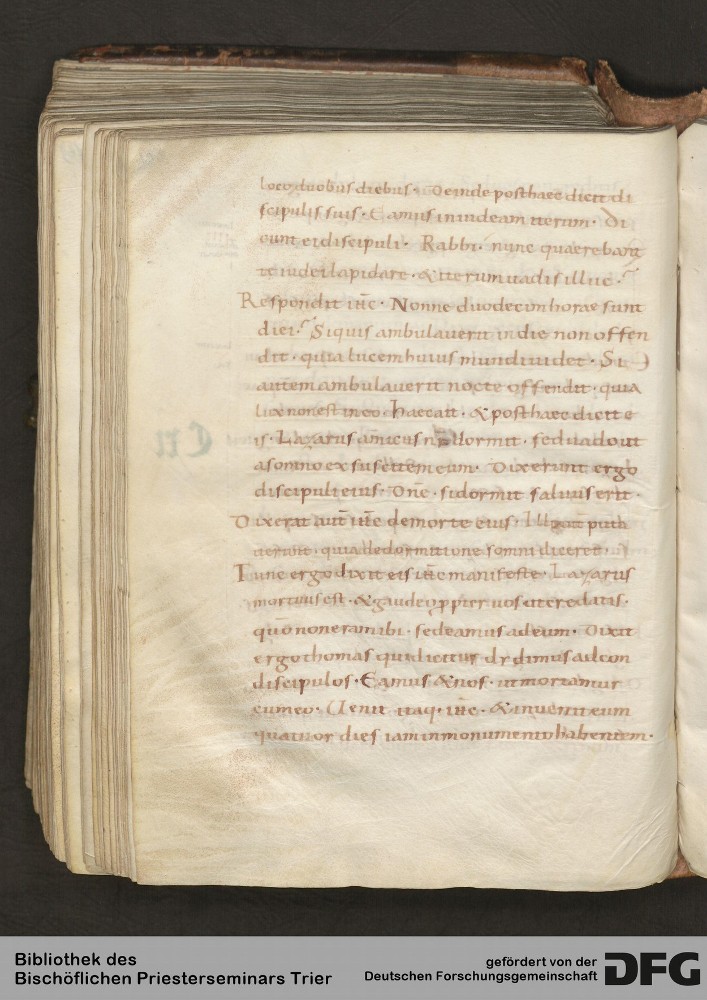 loco duobus diebus · Deinde posthaec dicit di
scipulis suis · Eamus in iudeam iterum · Di
cunt ei discipuli · Rabbi · nunc quaerebant
te iudei lapidare · & iterum uadis illuc ·
Respondit ihc · Nonne duodecim horae sunt
diei · Si quis ambulauerit in die non offen
dit · quia lucem huius mundi uidet · Si
autem ambulauerit nocte offendit · quia
lux non est in eo · haec ait · & post haec dicit e
is · Lazarus amicus nr dormit · sed uado ut
a somno exsuscitem eum · Dixerunt ergo
discipuli eius · Dne · si dormit saluus erit ·
Dixerat aut ihc de morte eius · Illi aut puta
uerunt · quia de dormitione somni diceret ·
Tunc ergo dixit eis ihc manifeste · Lazarus
mortuus est · & gaudeo ppter uos ut credatis ·
quo non eram ibi · sed eamus ad eum · Dixit
ergo thomas qui dicitur didimus ad con
discipulos · Eamus & nos · ut moriamur
cum eo · Uenit itaq · ihc · & inuenit eum
quatuor dies iam in monumento habentem ·
Bibliothek des
Bischöflichen Priesterseminars Trier
gefördert von der
Deutschen Forschungsgemeinschaft
DFG